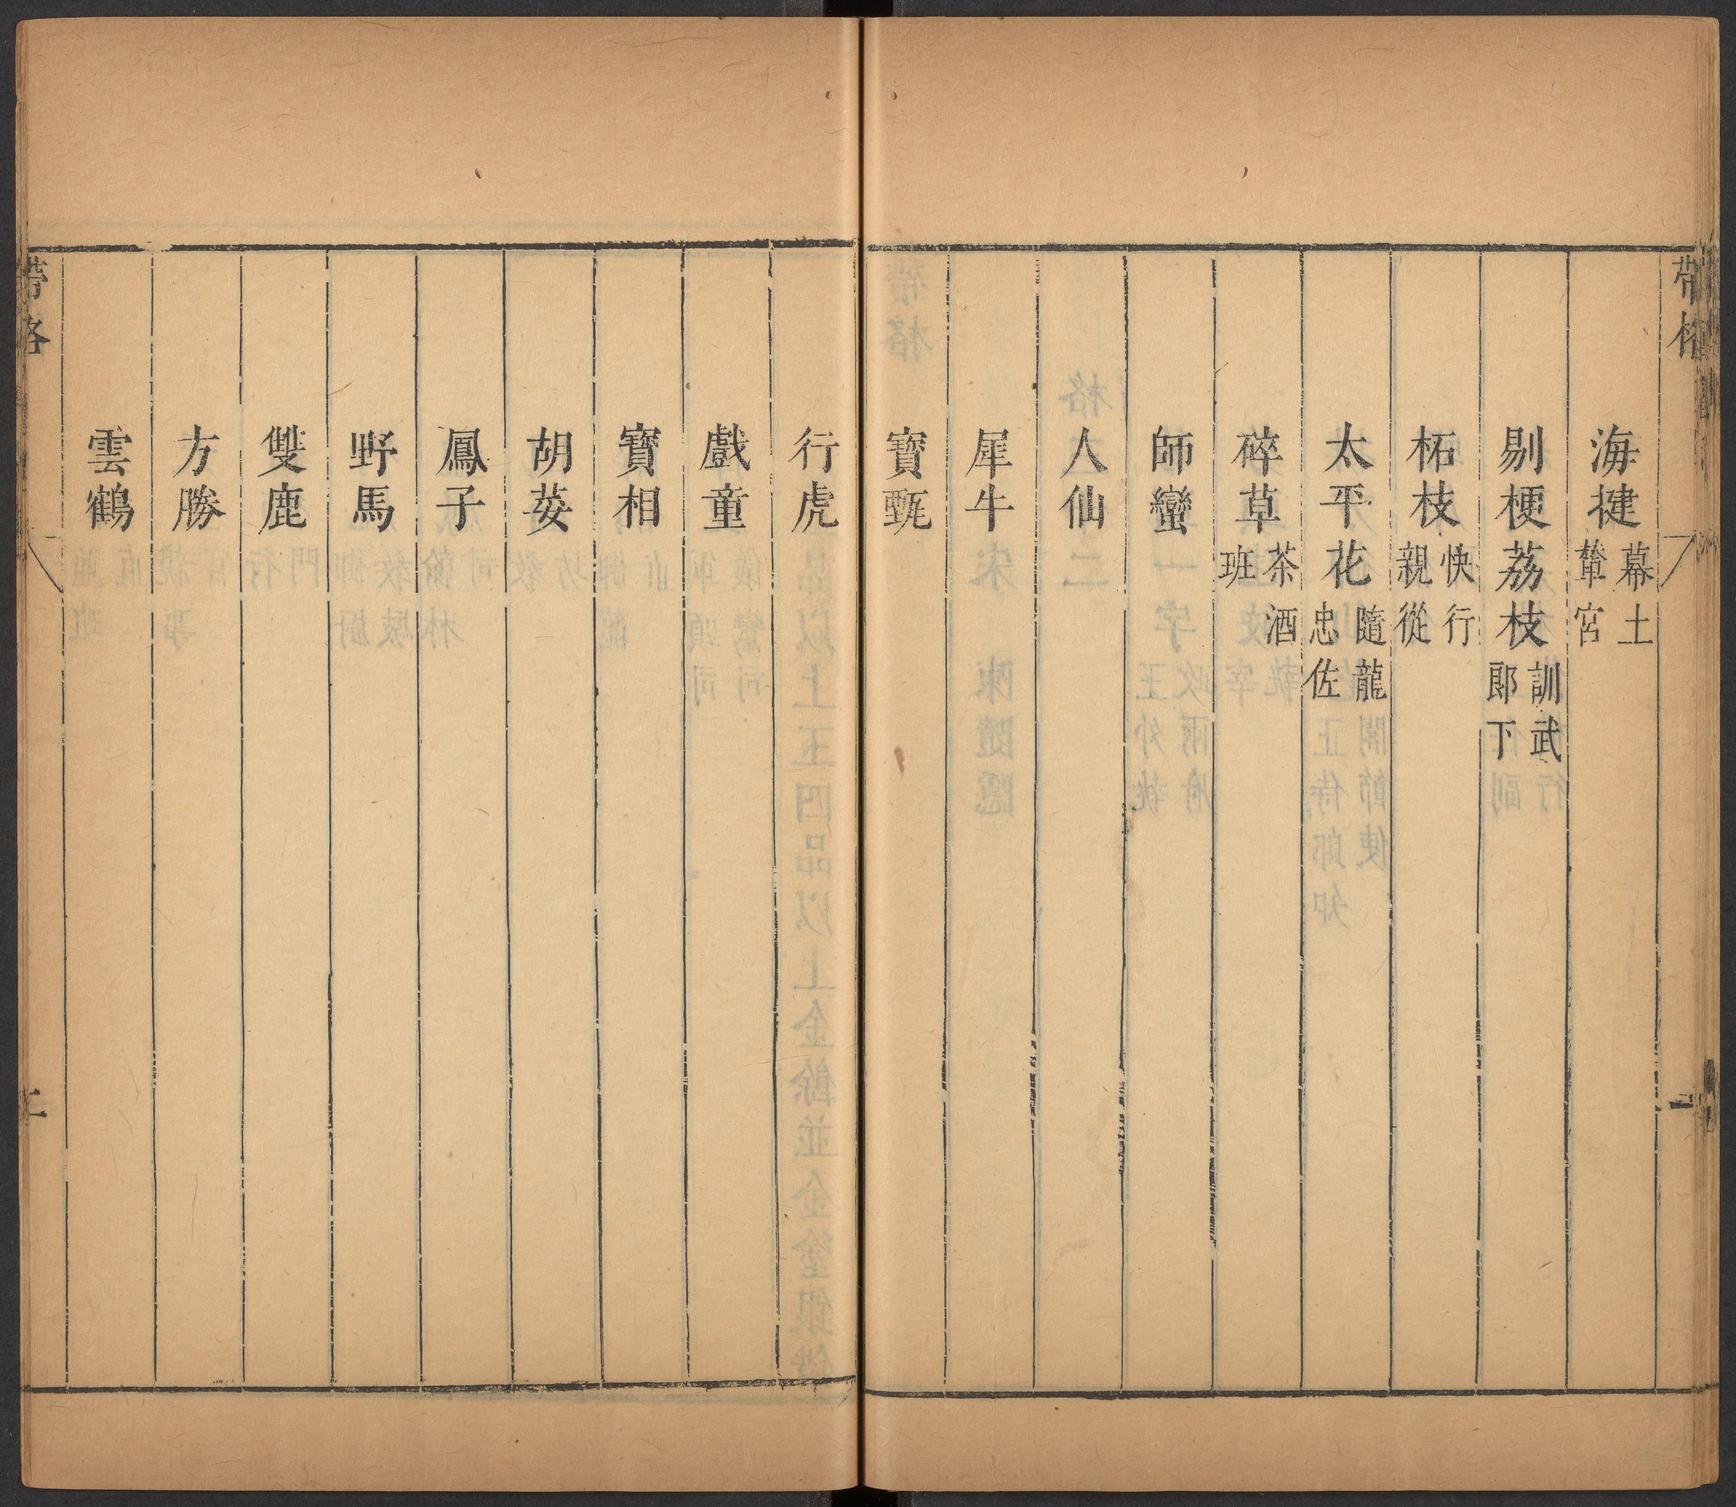 帶格
一
海捷幕士輦官
剔梗荔枝訓武郎下
柘枝快行親從
太平花隨龍忠佐
碎草茶酒班
師蠻
人仙
犀牛
寶甁
行虎
戲童
寶相
胡荽
鳳子
野馬
雙鹿
方勝
雲鶴
帶格
二